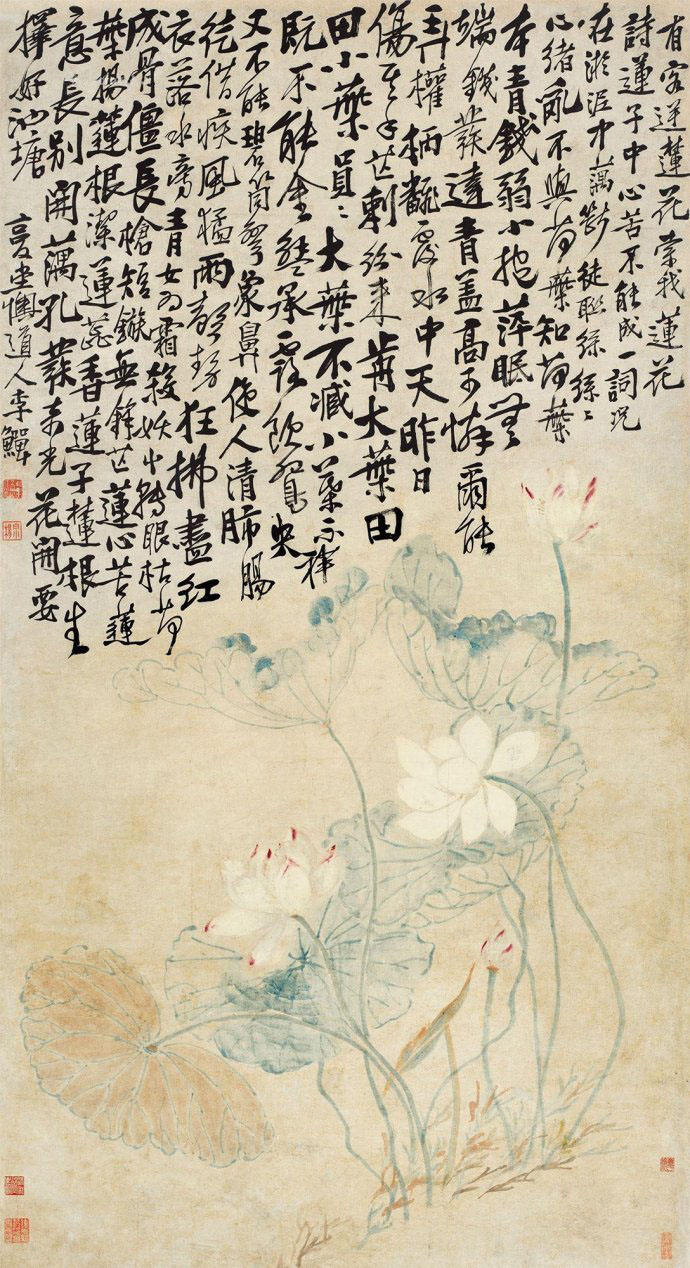 有客送蓮花索我蓮花
詩蓮子中心苦不能成一詞況
在淤泥中藕斷徒聯絲絲〻
心緒亂不與荷葉知荷葉
本青錢弱小抱萍眠無
端錢葉達青蓋高不怜爾能
弄權柄翻覆水中天昨日
傷手芒刺紛來前大葉田
田小葉員〻大葉不減小葉不祥
既不能金莖承露飲鴛央
又不能碧筒彎象鼻使人清肺腸
徒借疾風猛雨聲勢狂拂盡紅
衣落水旁青女為霜殺妖小轉眼枯荷
成骨僵長槍短鏃無鋒芒蓮心苦蓮
葉揚蓮根潔蓮蕊香蓮子蓮根生
意長別開藕孔發奇光花開要
擇好池塘
復堂懊道人李鱓